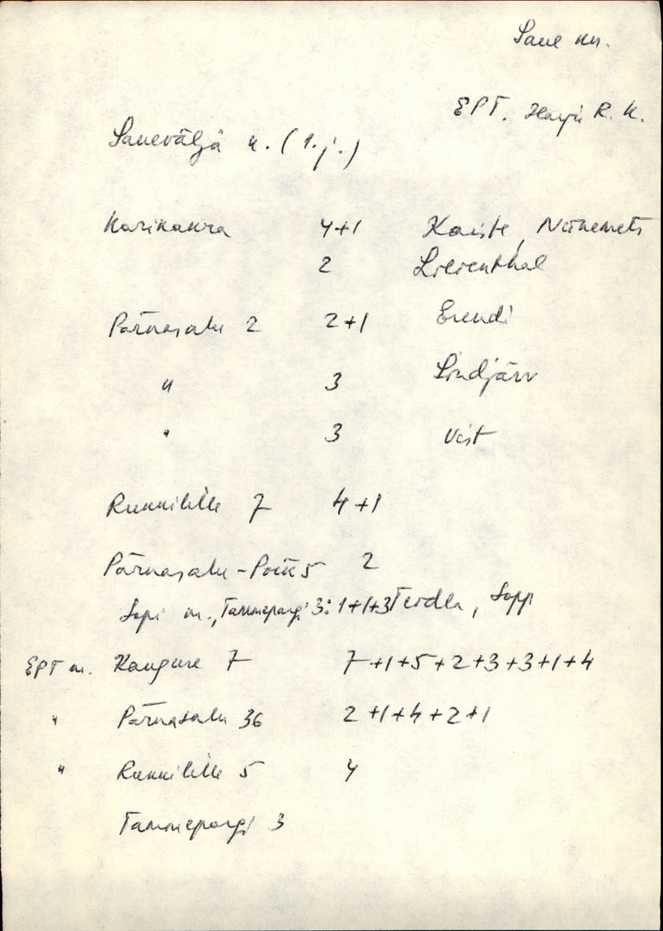 Saue
EPT. Harju R. K.
Sauevälja (1. j.)
Karikakra 4+1 Kaiste, Niinemets
2 Lilienthal
Pärnasalu 2 2+1 Eendi
" 3 Lindjärv
" 3 Vist
Kannilille 7 4+1
Pärnasalu-Põik 5 2
Sopi m., Tammepargi 3: 1+1+3 Teidla, Soppi
EPT m. Kangure 7 7+1+5+2+3+3+1+4
" Pärnasalu 36 2+1+4+2+1
" Kannilille 5 4
Tammepargi 3